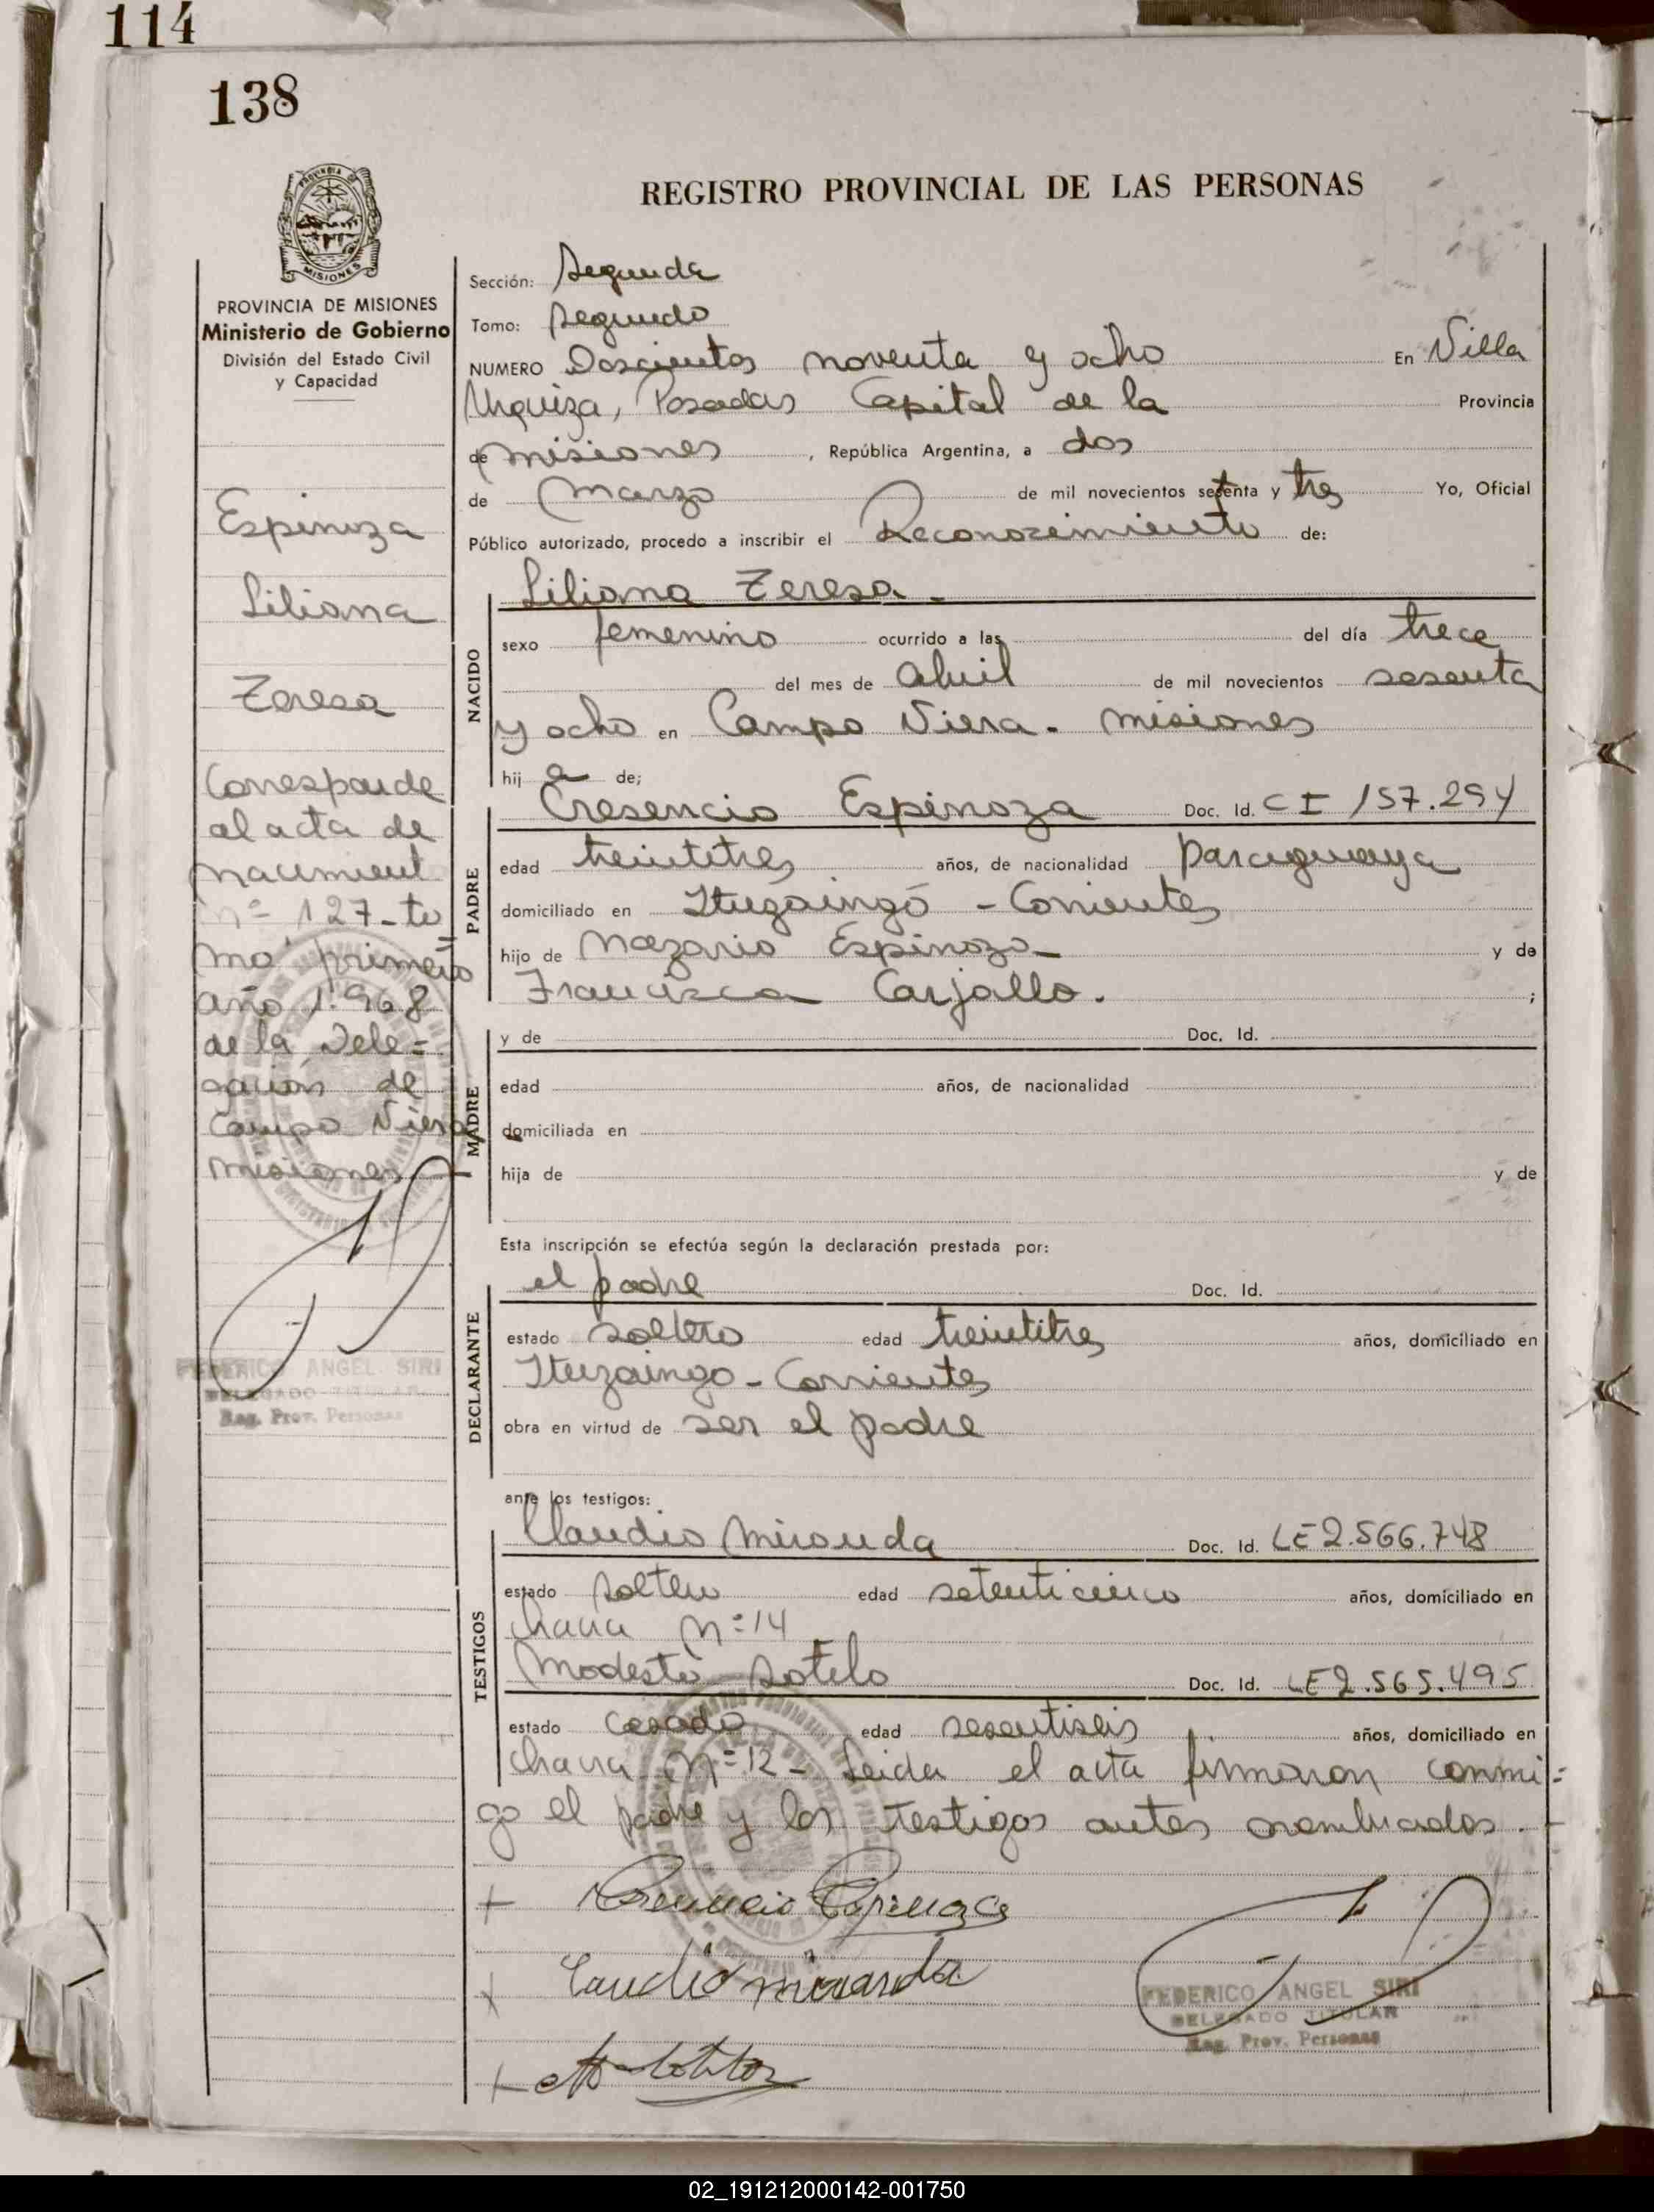 114
138
REGISTRO PROVINCIAL DE LAS PERSONAS
PROVINCIA DE MISIONES
MISIONES
PROVINCIA DE MISIONES
Ministerio de Gobierno
División del Estado Civil
y Capacidad
Espinoza
Liliana
Teresa
Corresponde
al acta de
nacimient
nº 127-to
mo primero
año 1.968
de la Dele=
gacion de
Campo Viera
misiones
FEDERICO ANGEL SIRI
DELEGADO TITULAR
Reg. Prov. Personas
Sección: Segunda
Tomo: Segundo
NUMERO Doscientos noventa y ocho En Villa
Urquiza, Posadas Capital de la Provincia
de misiones, República Argentina, a dos
de marzo de mil novecientos setenta y tres Yo, Oficial
Público autorizado, procedo a inscribir el Reconocimiento de:
NACIDO
Liliana Teresa.-
sexo femenino ocurrido a las del día trece
del mes de abril de mil novecientos sesenta
y ocho en Campo Viera. misiones
hij a de;
PADRE
Cresencio Espinoza Doc. Id. CI 157.294
edad treintitres años, de nacionalidad paraguaya
domiciliado en Ituzaingó - Corrientes
hijo de Nazario Espinoza y de
Francisca Carjallo. ;
MADRE
y de Doc. Id.
edad años, de nacionalidad
domiciliada en
hija de y de
Esta inscripción se efectúa según la declaración prestada por:
DECLARANTE
el padre Doc. Id.
estado soltero edad treintitres años, domiciliado en
Ituzaingo - Corrientes
obra en virtud de ser el padre
ante los testigos:
TESTIGOS
Claudio Miranda Doc. Id. LE 2.566.748
estado soltero edad setenticinco años, domiciliado en
chacra nº 14
Modesto Sotelo Doc. Id. LE 2.565.495
estado casado edad sesentiseis años, domiciliado en
chacra nº 12 - Leida el acta firmaron conmi=
go el padre y los testigos antes nombrados.
Cresencio Espinoza
Claudio miranda
FEDERICO ANGEL SIRI
DELEGADO TITULAR
Reg. Prov. Personas
02_191212000142-001750